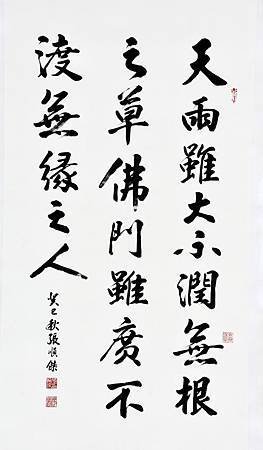 天雨雖大不潤無根
之草佛門雖廣不
渡無緣之人
癸巳秋張順傑